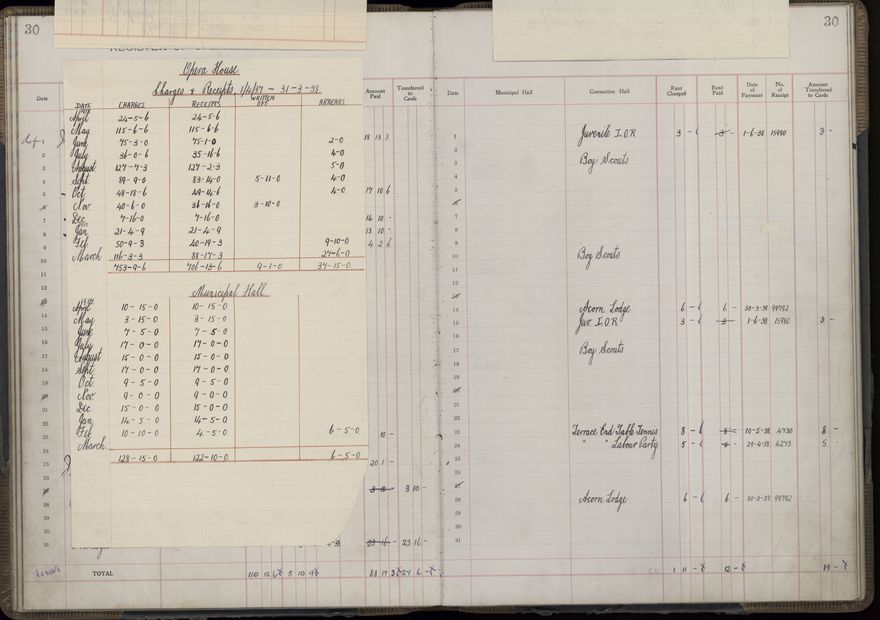 30
30
Opera House
Charges & Receipts, 1/4/37 - 31-3-38
DATE CHARGES RECEIPTS WRITTEN OFF ARREARS
April 24-5-6 24-5-6
May 115-6-6 115-6-6
June 75-3-0 75-1-0 2-0
July 36-0-6 35-16-6 4-0
August 127-7-3 127-2-3 5-0
Sept. 89-9-0 83-14-0 5-11-0 4-0
Oct 49-18-6 49-14-6 4-0
Nov. 40-6-0 36-16-0 3-10-0
Dec 7-16-0 7-16-0
Jan 21-4-9 21-4-9
Feb 50-9-3 40-19-3 9-10-0
March 116-3-3 88-17-3 27-6-0
753-9-6 706-13-6 9-1-0 37-15-0
Municipal Hall
April 10-15-0 10-15-0
May 3-15-0 3-15-0
June 7-5-0 7-5-0
July 17-0-0 17-0-0
August 15-0-0 15-0-0
Sept 17-0-0 17-0-0
Oct 9-5-0 9-5-0
Nov. 9-0-0 9-0-0
Dec 15-0-0 15-0-0
Jan 14-5-0 14-5-0
Feb 10-10-0 4-5-0 6-5-0
March
128-15-0 122-10-0 6-5-0
Date
Amount Paid
Transferred to Cards
18 13 3
17 10 6
14 10 -
13 10 -
4 2 6
10 -
20 1 -
3 10 - 3 10 -
23 16 - 23 16 -
TOTAL 110 12 6 5 10 9 88 17 3 27 6 -
Date Municipal Hall Coronation Hall Rent Charged Rent Paid Date of Payment No. of Receipt Amount Transferred to Cards
1 Juvenile I.O.R 3 - 3 - 1-6-38 15980 3 -
2
3 Boy Scouts
4
5
6
7
8
9
10 Boy Scouts
11
12
13
14 Acorn Lodge 6 - 6 - 30-3-38 99792
15 Juv. I.O.R 3 - 3 - 1-6-38 15980 3 -
16
17 Boy Scouts
18
19
20
21
22
23 Terrace End Table Tennis 8 - 8 - 10-5-38 4730 8 -
24 " " Labour Party 5 - 5 - 29-4-38 4273 5 -
25
26
27
28 Acorn Lodge 6 - 6 - 30-3-38 99792
29
30
31
1 11 - 12 - 19 -